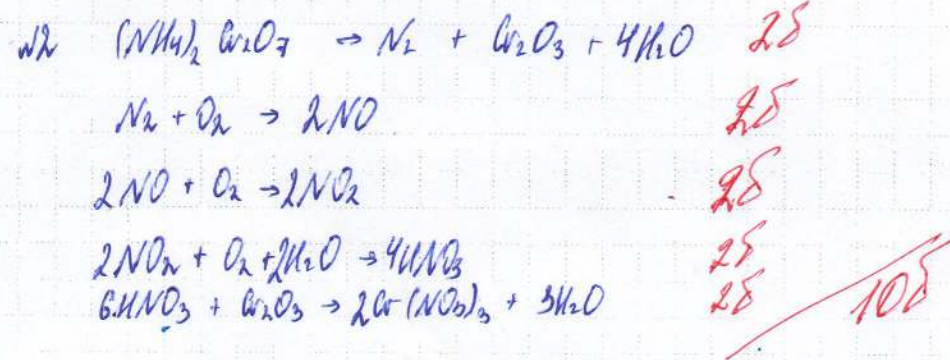 №2 (NH4)2 Cr2O7 → N2 + Cr2O3 + 4H2O 2б
N2 + O2 → 2NO 2б
2NO + O2 → 2NO2 2б
2NO2 + O2 + 2H2O → 4HNO3 2б
6HNO3 + Cr2O3 → 2Cr(NO3)3 + 3H2O 2б
10б